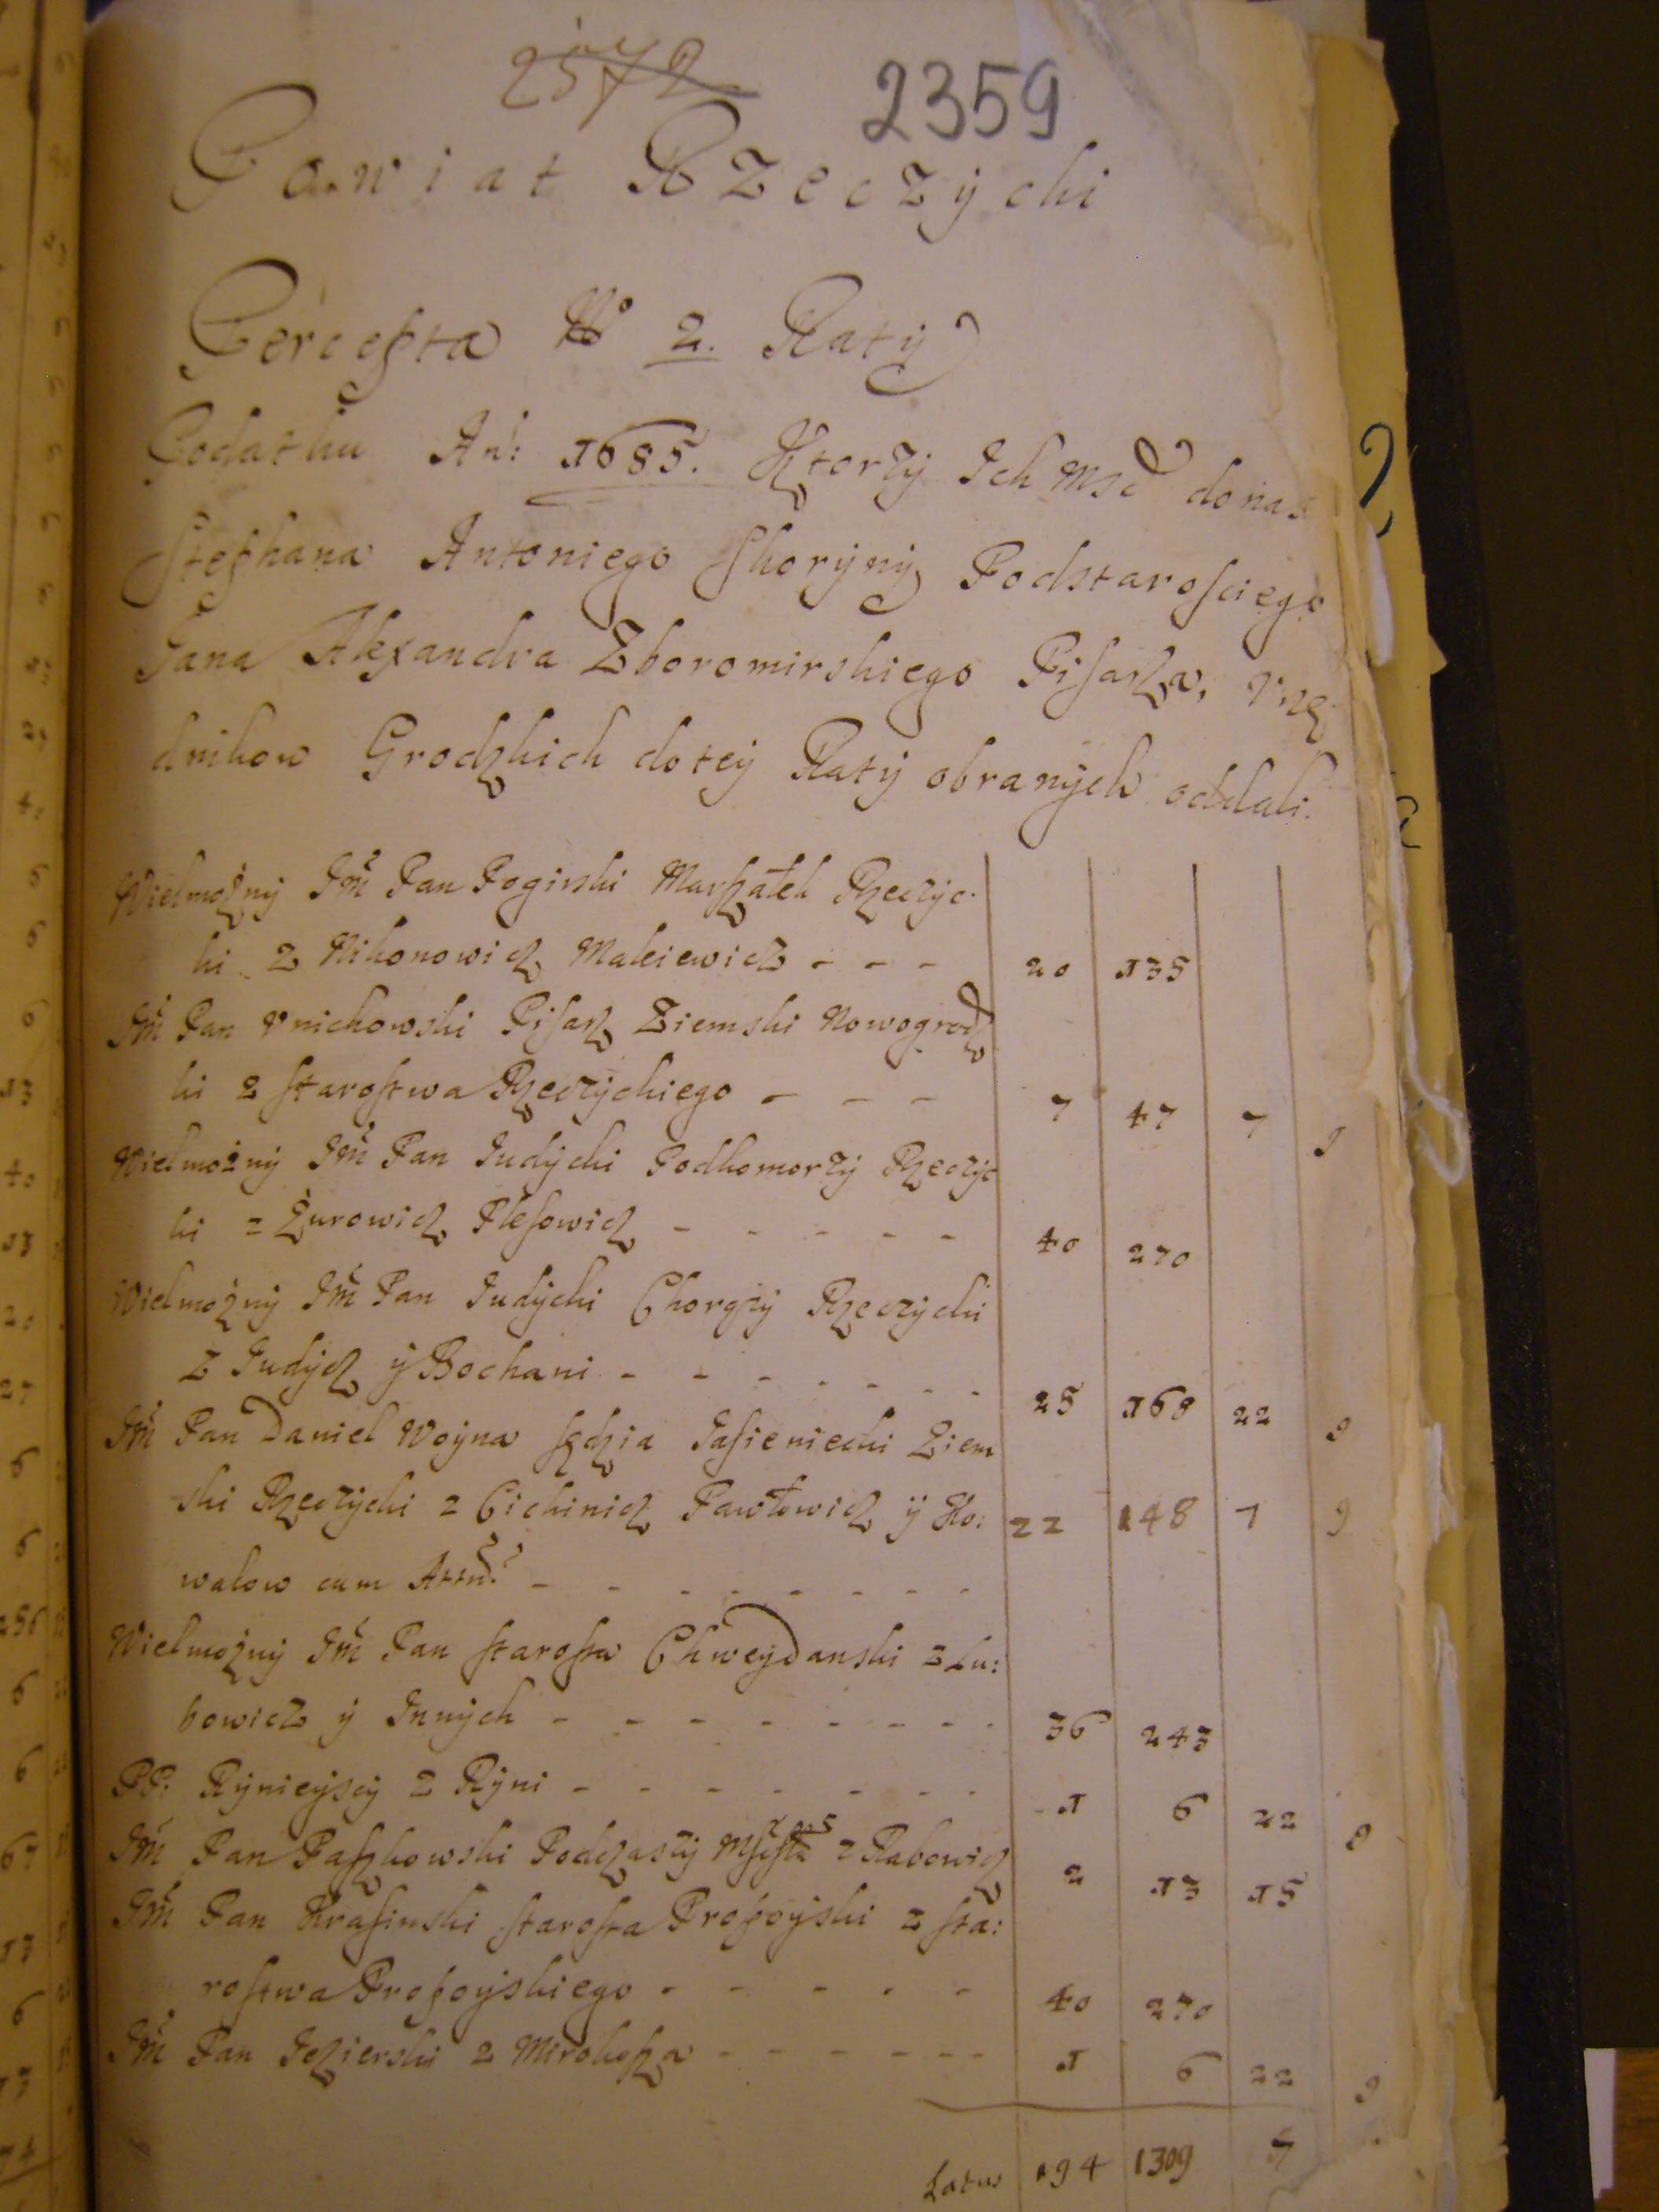 2572
2359
Powiat Rzeczycki
Percepta W 2. Raty
Podatku An: 1685. Ktorzy Ich Msc do nas
Stephana Antoniego Skoryny Podstarosciego
Jana Alexandra Zboromirskiego Pisarza, Vrzę
dnikow Grodzkich do tey Raty obranych oddali.
Wielmożny Jm Pan Poginski Marszałek Rzeczyc
ki z Nikonowicz Maleiewicz - - - 20 135
Jm Pan Vnichowski Pisarz Ziemski Nowogrodz
ki z Starostwa Rzeczyckiego - - - 7 47 7 9
Wielmożny Jm Pan Judycki Podkomorzy Rzeczyc
ki z Żurowicz Plesowicz - - - - - 40 270
Wielmożny Jm Pan Judycki Chorąży Rzeczycki
z Judycz y Bochani - - - - - - - 25 168 22 9
Jm Pan Daniel Woyna Sędzia Jasieniecki Ziem
ski Rzeczycki z Cichinicz Pawłowicz y Ko: 22 148 7 9
walow cum Attin: - - - - - - - -
Wielmożny Jm Pan Starosta Chweydanski z Lu:
bowicz y Innych - - - - - - - - 36 243
PP: Rynieyscy z Ryni - - - - - - - 1 6 22 9
Jm Pan Paszkowski Podczaszy z Rabowicz 2 13 15
Jm Pan Krasinski Starosta Propoyski z Sta:
rostwa Propoyskiego - - - - - 40 270
Jm Pan Jezierski z Mirokosza - - - - - - 1 6 22 9
Latus 194 1309 7